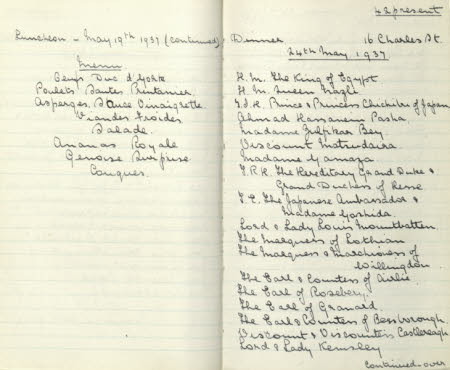 Luncheon - May 19th 1937 (continued)
Menu
Oeufs Duc d'York
Poulets Sautes Printanier
Asperges, Sauce Vinaigrette
Viandes Froides
Salade
Ananas Royale
Genoise Surprise
42 present
Dinner 16 Charles St.
24th May. 1937.
H.M. The King of Egypt
H.M. Queen Nazli
Prince & Princess Chichibu of Japan
Ahmad Hassanein Pasha
Madame Zulfikar Bey
Viscount Matsudaira
Madame Yamaza
T.R.H. The Hereditary Grand Duke &
Grand Duchess of Hesse
T.E. The Japanese Ambassador &
Madame Yoshida
Lord & Lady Louis Mountbatten
The Marquess of Lothian
The Marquess & Marchioness of
Willingdon
The Earl & Countess of Airlie
The Earl of Rosebery
The Earl of Granard
The Earl & Countess of Bessborough
Viscount & Viscountess Castlereagh
Lord & Lady Kemsley
Continued-over